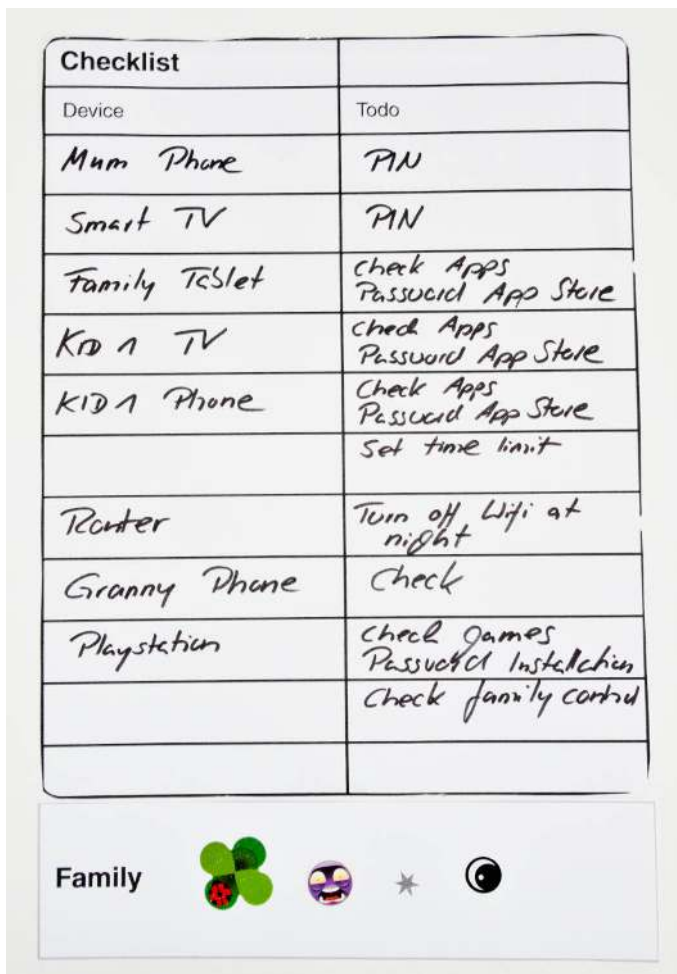 Checklist
Device Todo
Mum Phone PIN
Smart TV PIN
Family Tablet Check Apps
Password App Store
KID 1 TV Check Apps
Password App Store
KID 1 Phone Check Apps
Password App Store
Set time limit
Router Turn off Wifi at
night
Granny Phone Check
Playstation Check games
Password Installation
Check family control
Family